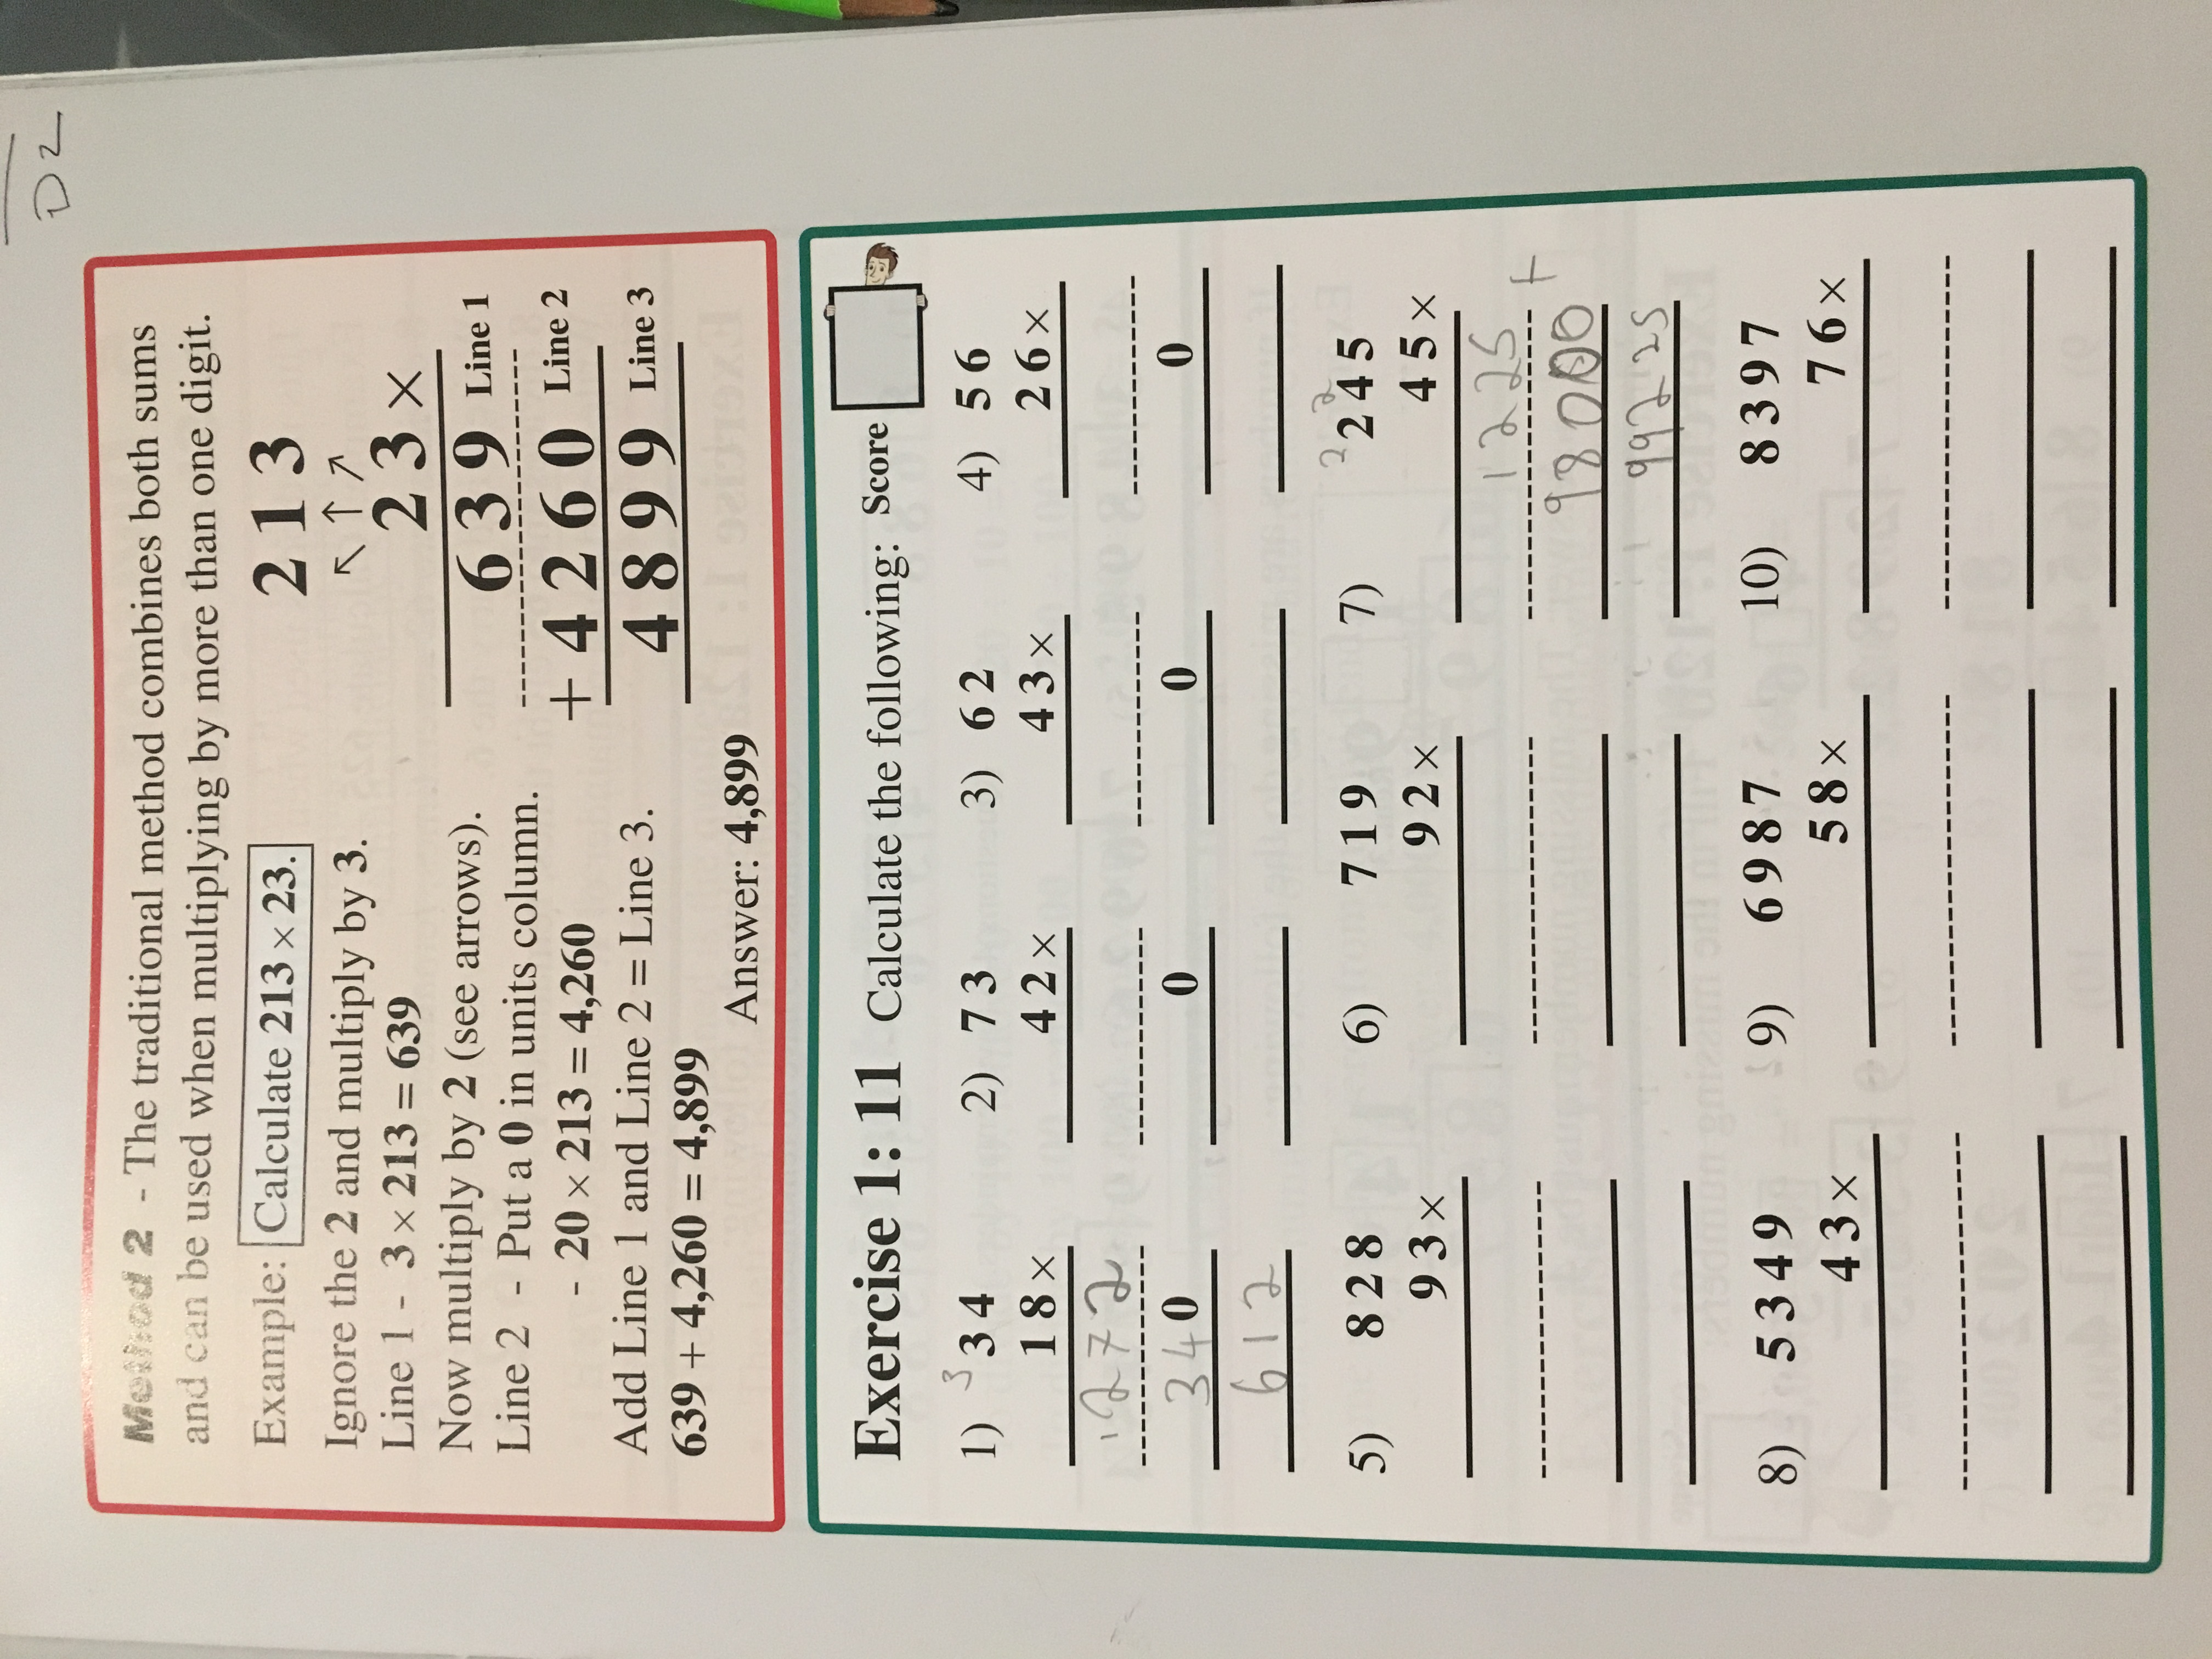 D2
Method 2 - The traditional method combines both sums
and can be used when multiplying by more than one digit.
Example: Calculate 213 × 23.
Ignore the 2 and multiply by 3.
Line 1 - 3 × 213 = 639
Now multiply by 2 (see arrows).
Line 2 - Put a 0 in units column.
- 20 × 213 = 4,260
Add Line 1 and Line 2 = Line 3.
639 + 4,260 = 4,899
Answer: 4,899
213
↖ ↑ ↗
23×
639 Line 1
+4260 Line 2
4899 Line 3
Exercise 1: 11 Calculate the following: Score
1) 3 34
18×
1272
340
612
2) 73
42×
0
3) 62
43×
0
4) 56
26×
0
5) 828
93×
6) 719
92×
2 2
7) 245
45×
1225
+
98000
99225
8) 5349
43×
9) 6987
58×
10) 8397
76×